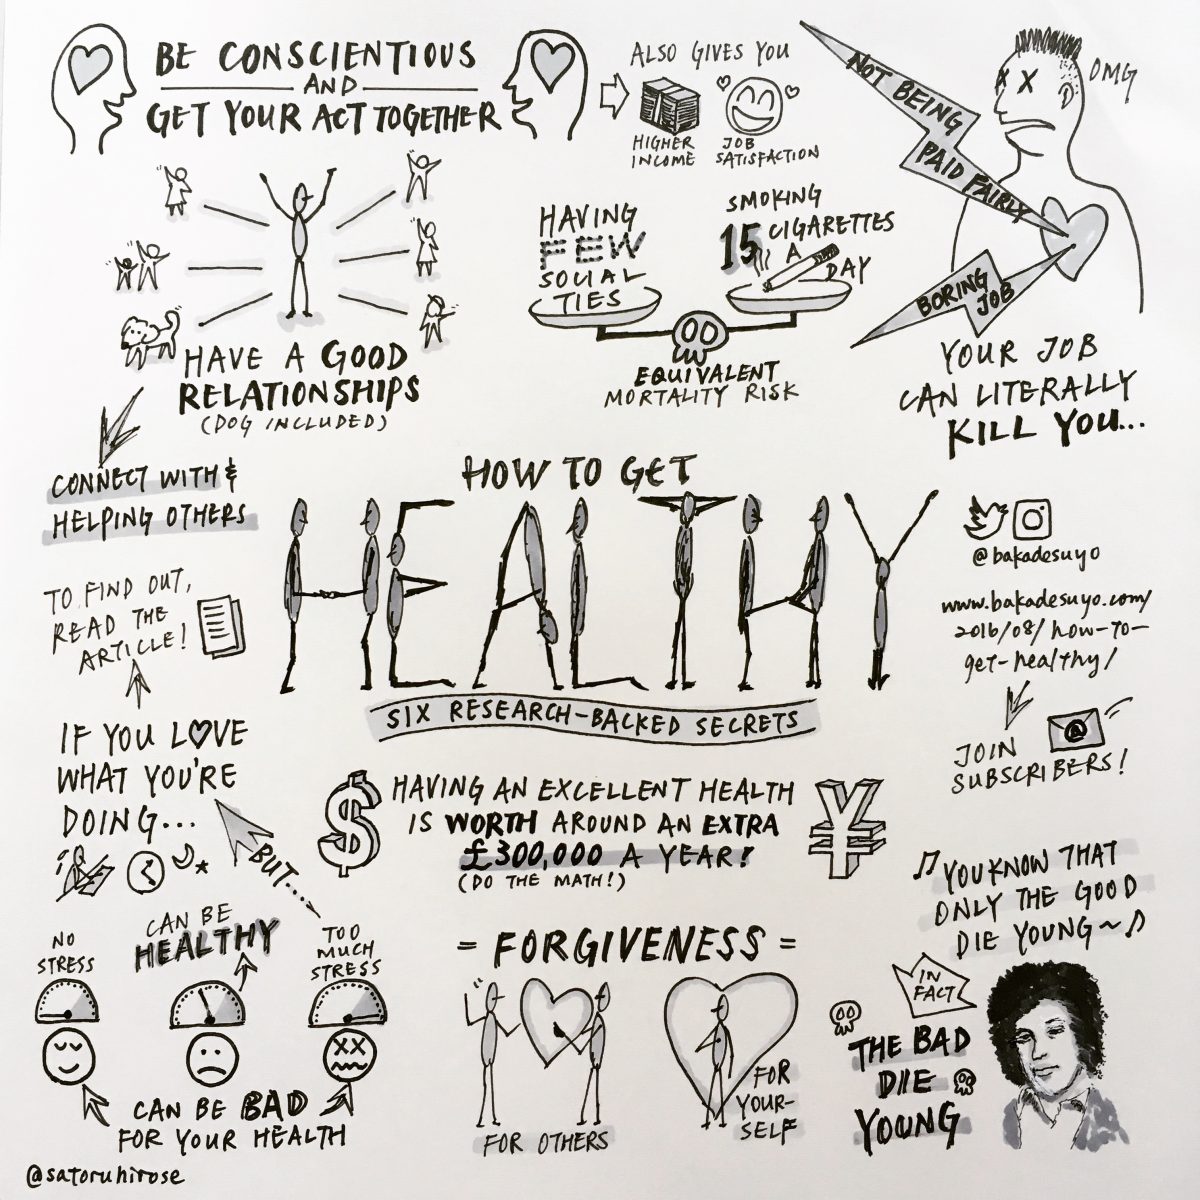 BE CONSCIENTIOUS
AND
GET YOUR ACT TOGETHER
ALSO GIVES YOU
HIGHER
INCOME
JOB
SATISFACTION
NOT BEING
PAID FAIRLY
OMG
BORING
JOB
YOUR JOB
CAN LITERALLY
KILL YOU...
HAVING
FEW
SOCIAL
TIES
SMOKING
15 CIGARETTES
A
DAY
EQUIVALENT
MORTALITY RISK
HAVE A GOOD
RELATIONSHIPS
(DOG INCLUDED)
CONNECT WITH &
HELPING OTHERS
HOW TO GET
HEALTHY
SIX RESEARCH-BACKED SECRETS
@bakadesuyo
www.bakadesuyo.com/
2016/08/how-to-
get-healthy/
JOIN
SUBSCRIBERS!
@
TO FIND OUT,
READ THE
ARTICLE!
IF YOU L♥VE
WHAT YOU'RE
DOING...
BUT....
$
HAVING AN EXCELLENT HEALTH
IS WORTH AROUND AN EXTRA
£300,000 A YEAR!
(DO THE MATH!)
¥
NO
STRESS
CAN BE
HEALTHY
TOO
MUCH
STRESS
CAN BE BAD
FOR YOUR HEALTH
= FORGIVENESS =
FOR OTHERS
FOR
YOUR-
SELF
♫ YOU KNOW THAT
ONLY THE GOOD
DIE YOUNG~♪
IN
FACT
THE BAD
DIE
YOUNG
@satoruhirose